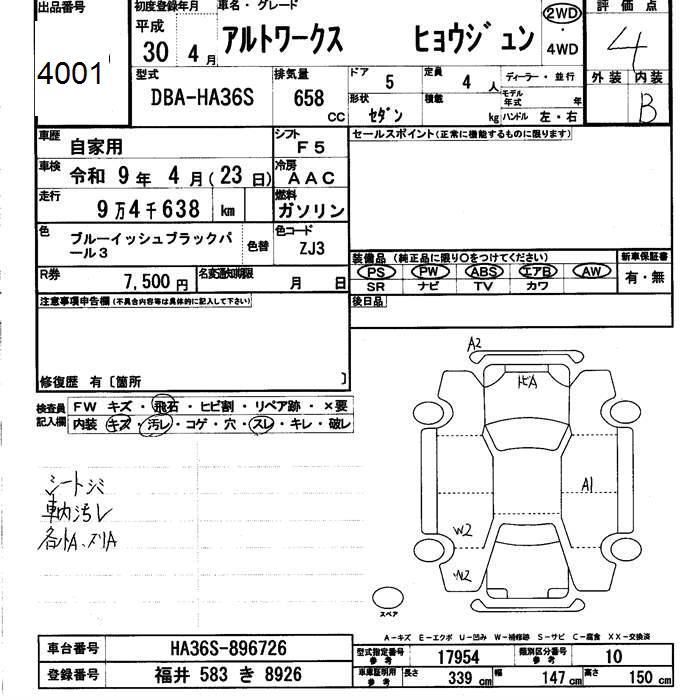 出品番号 4001
初度登録年月 平成 30年 4月
車名・グレード アルトワークス ヒョウジュン
2WD・4WD
評価点 4
外装 内装 B
型式 DBA-HA36S
排気量 658 CC
ドア 5
定員 4 人
ディーラー・並行
形状 セダン
積載 kg
モデル年式 年
ハンドル 左・右
車歴 自家用
シフト F5
セールスポイント(正常に機能するものに限ります)
車検 令和 9年 4月(23日)
冷房 AAC
走行 9万4千638 km
燃料 ガソリン
色 ブルーイッシュブラックパール3
色替
色コード ZJ3
装備品(純正品に限り○をつけてください)
PS PW ABS エアB AW
SR ナビ TV カワ
新車保証書 有・無
R券 7,500円
名変通知期限 月 日
後日品
注意事項申告欄(不具合内容等は具体的に記入して下さい)
修復歴 有〔箇所 〕
検査員記入欄
FW キズ・飛石・ヒビ割・リペア跡・×要
内装 キズ・汚レ・コゲ・穴・スレ・キレ・破レ
車内汚レ
A2
A1
W2
W2
スペア
A-キズ E-エクボ U-凹み W-補修跡 S-サビ C-腐食 XX-交換済
車台番号 HA36S-896726
型式指定番号 参考 17954
類別区分番号 参考 10
登録番号 福井 583 き 8926
車庫証明用 参考 長さ 339 cm 幅 147 cm 高さ 150 cm